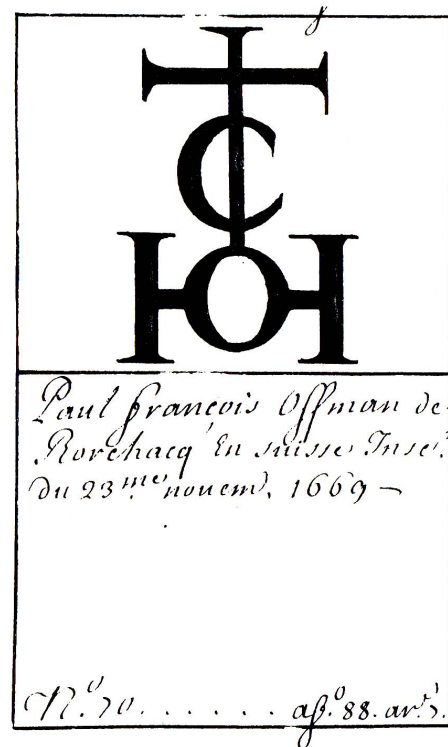 C
HOH
Paul François Offman de
Rorchacq En suisse Inse.
du 23.me nouem. 1669 –
N.o 70. . . . . . . af.o 88. ar.